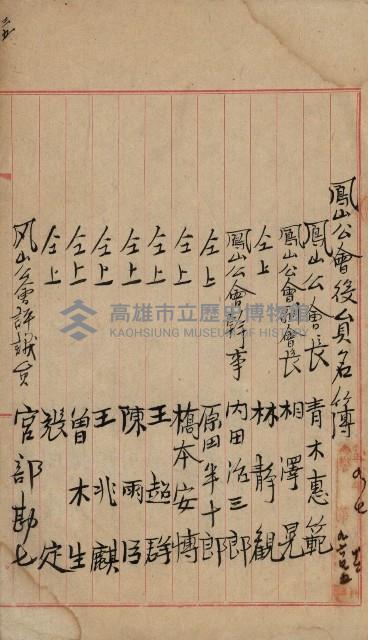 鳳山公會役員名簿
鳳山公會長 青木惠範
鳳山公會副會長 相澤晃
仝上 林靜觀
鳳山公會幹事 内田治三郎
仝上 原田半十郎
仝上 橋本安博
仝上 王超群
仝上 陳雨
仝上 王兆麒
仝上 曾木生
仝上 張定
凤山公會評議員 宮部勘七
高雄市立歷史博物館
KAOHSIUNG MUSEUM OF HISTORY